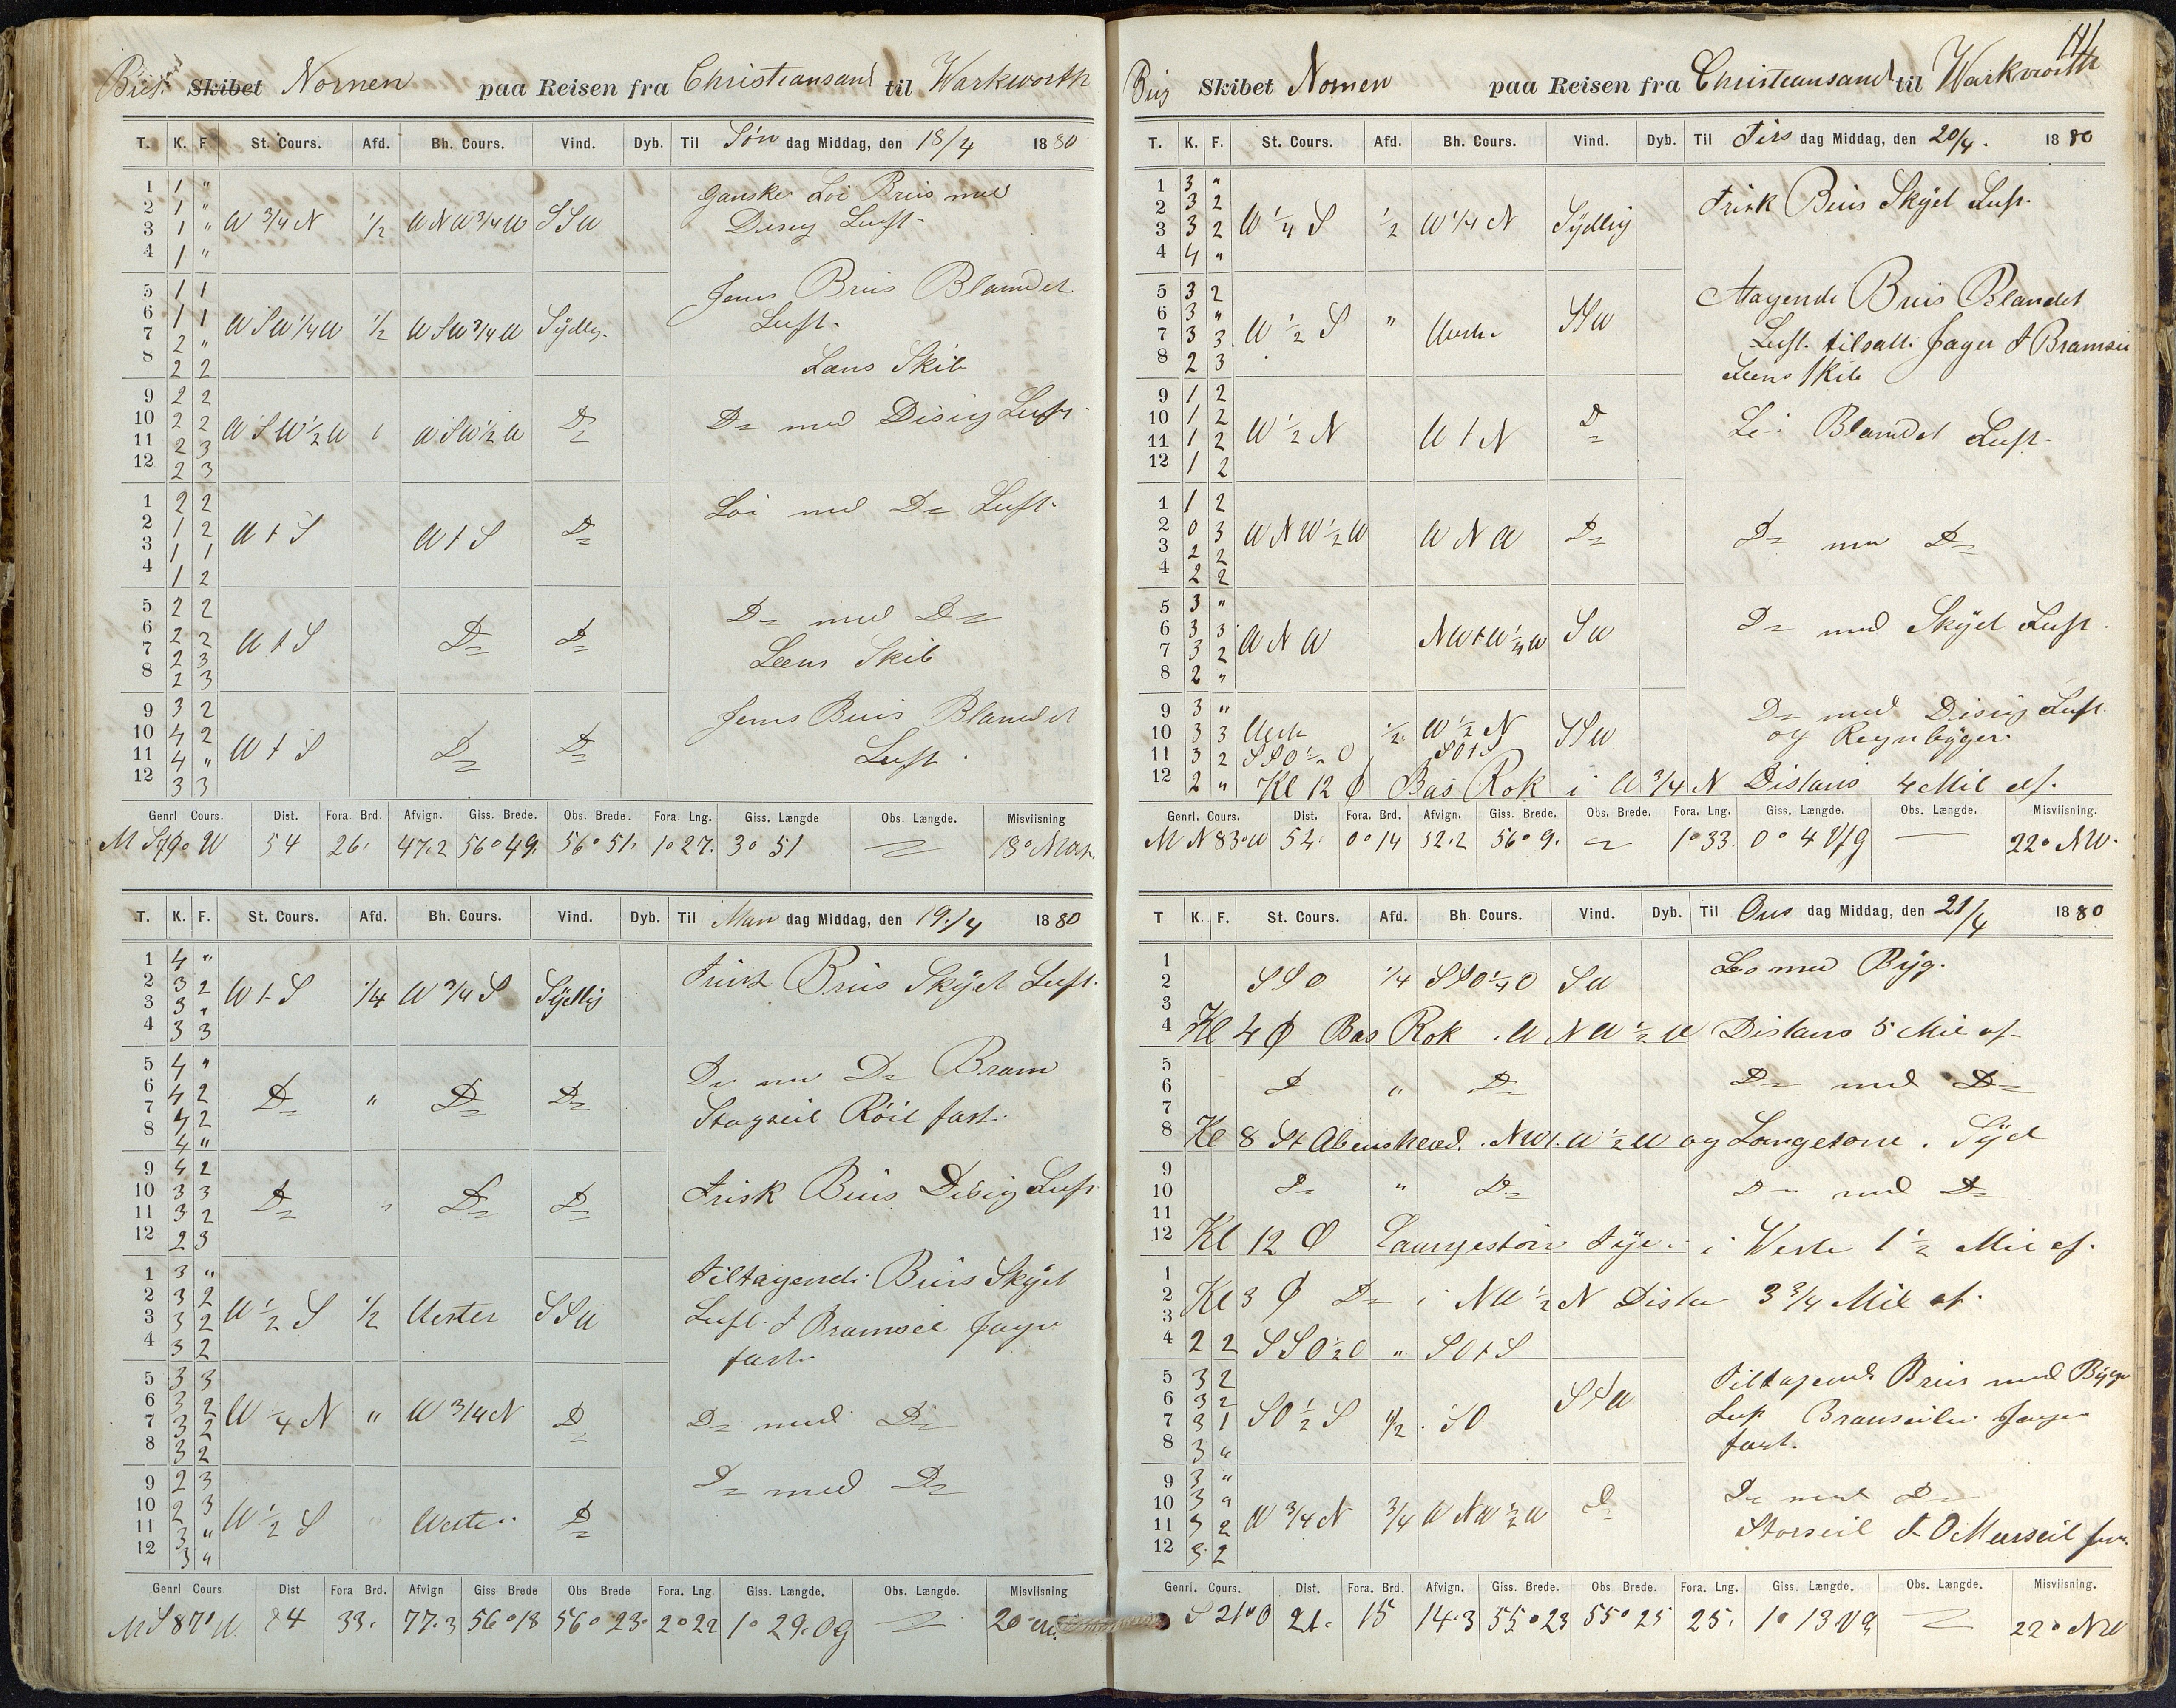 Brig Skibet Nornen paa Reisen fra Christiansand til Warkworth
T. K. F. St. Cours. Afd. Bh. Cours. Vind. Dyb. Til Søn dag Middag, den 18/4 1880
1 1 "
2 1 "
3 1 " W 3/4 N 1/2 WNW 3/4 W SSW
4 1 "
Ganske Løi Bris med
Disig Luft
5 1 1
6 1 1 WSW 1/4 W 1/2 WSW 3/4 W Sÿdlig
7 2 "
8 2 2
Jevns Bris Blandet
Luft.
Læns Skib
9 2 2
10 2 2 WSW 1/2 W WSW 1/2 W Do
11 2 3
12 2 3
Do med Disig Luft
1 2 2
2 1 2 W t S W t S Do
3 1 1
4 1 2
Løi med Do Luft
5 2 2
6 2 2 W t S Do Do
7 2 3
8 2 3
Do med Do
Læns Skib
9 3 2
10 4 2 W t S Do Do
11 4 "
12 3 3
Jevns Bris Blandet
Luft
Genrl Cours. Dist. Fora. Brd. Afvign. Giss. Brede. Obs. Brede. Fora. Lng. Giss. Længde Obs. Længde. Misviisning
M S79°W 54 26. 47.2 56°49. 56°51. 1°27. 3° 51 18°
T. K. F. St. Cours. Afd. Bh. Cours. Vind. Dyb. Til Man dag Middag, den 19./4 1880
1 4 "
2 3 2 W t S 1/4 W 3/4 S Sÿdlig
3 3 "
4 3 3
Frisk Bris Skÿet Luft.
5 4 "
6 4 2 Do " Do Do
7 4 2
8 4 "
Do med Do Bram
Stagseil Röil fast.
9 4 2
10 3 3 Do " Do Do
11 3 2
12 2 3
Frisk Bris Disig Luft
1 3 "
2 3 2 W 1/2 S 1/2 Vester SSW
3 3 2
4 3 2
Tiltagende Bris Skÿet
Luft. F Bramseil Jager
fast.
5 3 3
6 3 2 W 1/4 N " W 3/4 N Do
7 3 2
8 3 2
Do med Do
9 2 3
10 2 3 W 1/2 S " Vester Do
11 3 "
12 3 "
Do med Do
Genrl Cours Dist Fora Brd. Afvign Giss Brede Obs Brede Fora. Lng Giss. Længde. Obs. Længde. Misviisning
M S 87° W. 84 33. 77.3 56°18 56° 23. 2°22 1° 29. Og 20
111
Brig Skibet Nornen paa Reisen fra Christiansand til Warkworth
T. K. F. St. Cours. Afd. Bh. Cours. Vind. Dyb. Til Tirs dag Middag, den 20/4. 1880
1 3 "
2 3 2
3 3 2 W 1/4 S 1/2 W 1/4 N Sÿdlig
4 4 "
Frisk Bris Skÿet Luft.
5 3 2
6 3 "
7 3 3 W 1/2 S " Vester SSW
8 2 3
Bris Blandet
Luft. tilsatte Jager F Bramsei
Læns Skib
9 1 2
10 1 2
11 1 2 W 1/2 N W t N Do
12 1 2
Løi Blandet Luft
1 1 2
2 0 3 WNW 1/2 W WNW Do
3 2 2
4 2 2
Do med Do
5 3 "
6 3 3
7 3 2 WNW NWtW 1/4 W SW
8 2 "
Do med Skÿet Luft.
9 3 "
10 3 3 Vester 1/2 W 1/2 N SSW
11 3 2 SSO 1/2 O SOtS
Do med Disig Luft
og Regnbÿger.
12 2 " Kl 12 Bas Rok i W 3/4 N Distans 4 Mil af.
Genrl. Cours. Dist. Fora. Brd. Afvign. Giss. Brede. Obs. Brede. Fora. Lng. Giss. Længde. Obs. Længde. Misviisning
M N 83°W 52. 0°14 52.2 56°9. 1°33. 0° 4 Vfg 22° NW.
T K F. St. Cours. Afd. Bh Cours. Vind. Dyb. Til Ons dag Middag, den 21/4 1880
1
2 SSO 1/4 SSO 1/4 O SW
3
Lø med Bÿg.
4 Kl 4 Bas Rok . WNW 1/2 W Distans 5 Mil af
5
6 Do " Do Do med Do
7
8 Kl 8 St Abenshead. NWt.W 1/2 W og Langstone. Sÿd
9
10 Do " Do Do med Do
11
12 Kl 12 Langston Fÿr i Veste 1 1/2 Mil af.
1
2 Kl 3 Do i NW 1/2 N Distan 3 3/4 Mil af.
3
4 2 2 SSO 1/2 O " SOtS
5 3 2
6 3 2
7 3 1 SO 1/2 S 1/2. SO SSW
8 3 "
Tiltagende Bris med Bÿge
Luft Bramseilen Jager
fast.
9 3 "
10 3 "
11 3 2 W 3/4 N 3/4 WNW 1/2 W Do
12 3 2
Do med Do
Storseil F O Merseil
Genrl. Cours. Dist. Fora. Brd. Afvign. Giss. Brede. Obs Brede. Fora. Lng. Giss. Længde. Obs. Længde. Misviisning.
S 21°O 21. 15 14.3 55°23 55°25 25. 1° 13 Vg 22° NW